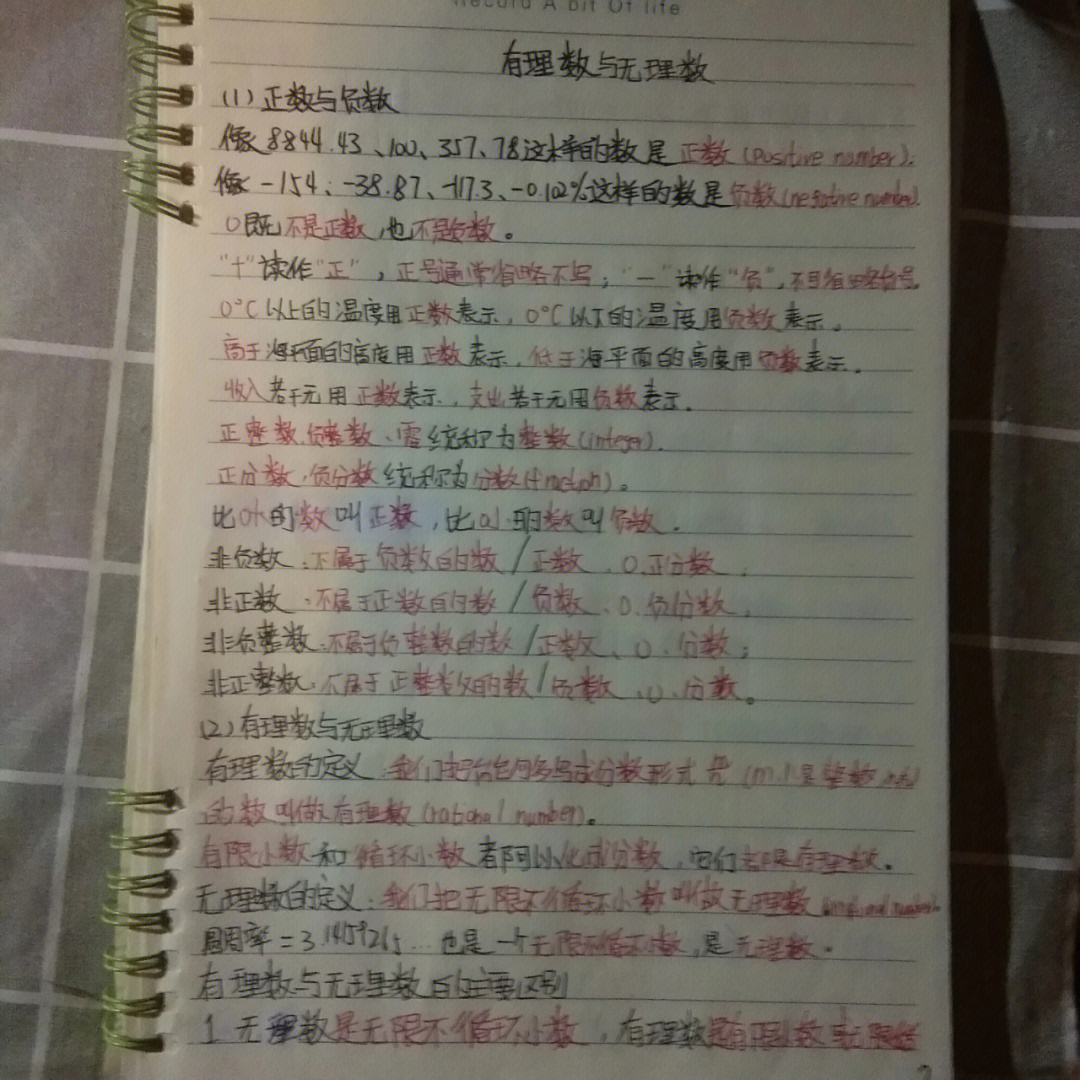 Record A bit Of life
有理数与无理数
(1) 正数与负数
像8844.43、100、357、78这样的数是正数(positive number).
像-154、-38.87、-117.3、-0.102%这样的数是负数(negative number).
0既不是正数,也不是负数。
"+"读作"正",正号通常省略不写;"-"读作"负",不可省略负号.
0°C以上的温度用正数表示,0°C以下的温度用负数表示。
高于海平面的高度用正数表示,低于海平面的高度用负数表示。
收入若干元用正数表示,支出若干元用负数表示。
正整数、负整数、零统称为整数(integer).
正分数、负分数统称为分数(fraction)。
比0大的数叫正数,比0小的数叫负数.
非负数:不属于负数的数/正数、0、正分数;
非正数:不属于正数的数/负数、0、负分数;
非负整数:不属于负整数的数/正数、0、分数;
非正整数:不属于正整数的数/负数、0、分数。
(2)有理数与无理数
有理数的定义:我们把能够写成分数形式 (m、n是整数
的数叫做有理数(rational number)。
有限小数和循环小数都可以化成分数,它们都是有理数。
无理数的定义:我们把无限不循环小数叫做无理数(irrational number).
圆周率=3.1415926…也是一个无限不循环小数,是无理数.
有理数与无理数的主要区别
1.无理数是无限不循环小数,有理数是有限小数或无限循